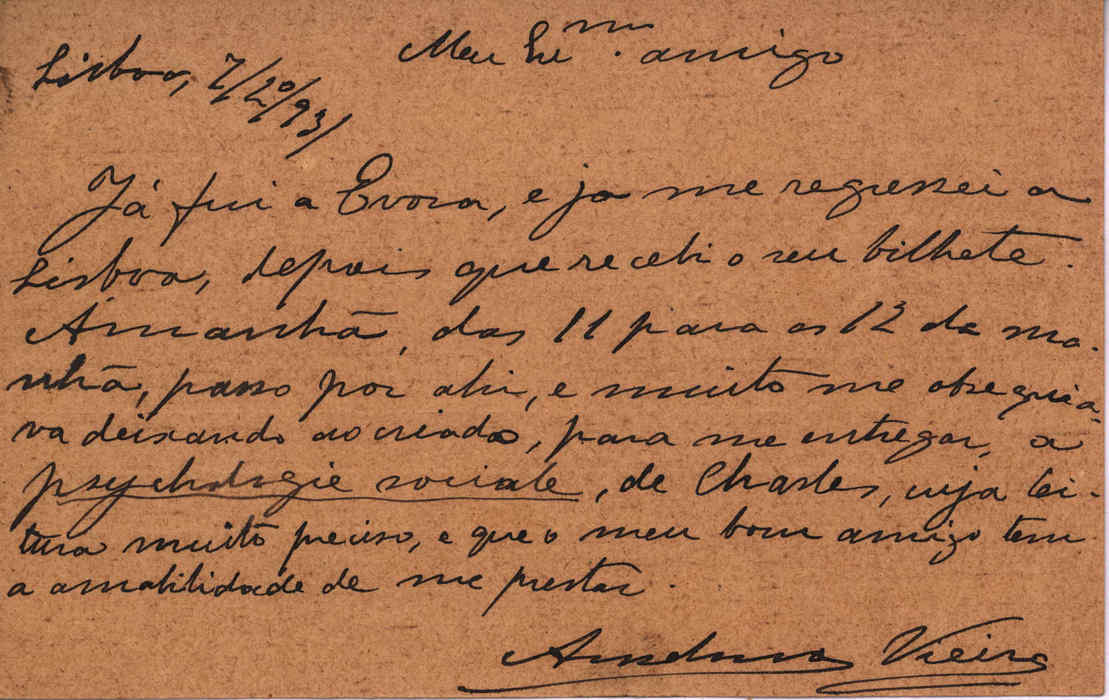 Lisboa, 7/20/93/
Meu amigo
Já fui a Evora, e ja me regressei a
Lisboa, depois que recebi o seu bilhete.
Amanhã, das 11 para as 12 da ma-
nhã, passo por ahi, e muito me obsequia-
va deixando ao criado, para me entregar, a
psychologie sociale, de Charles, cuja lei-
tura muito preciso, e que o meu bom amigo tem
a amabilidade de me prestar.
Vieira